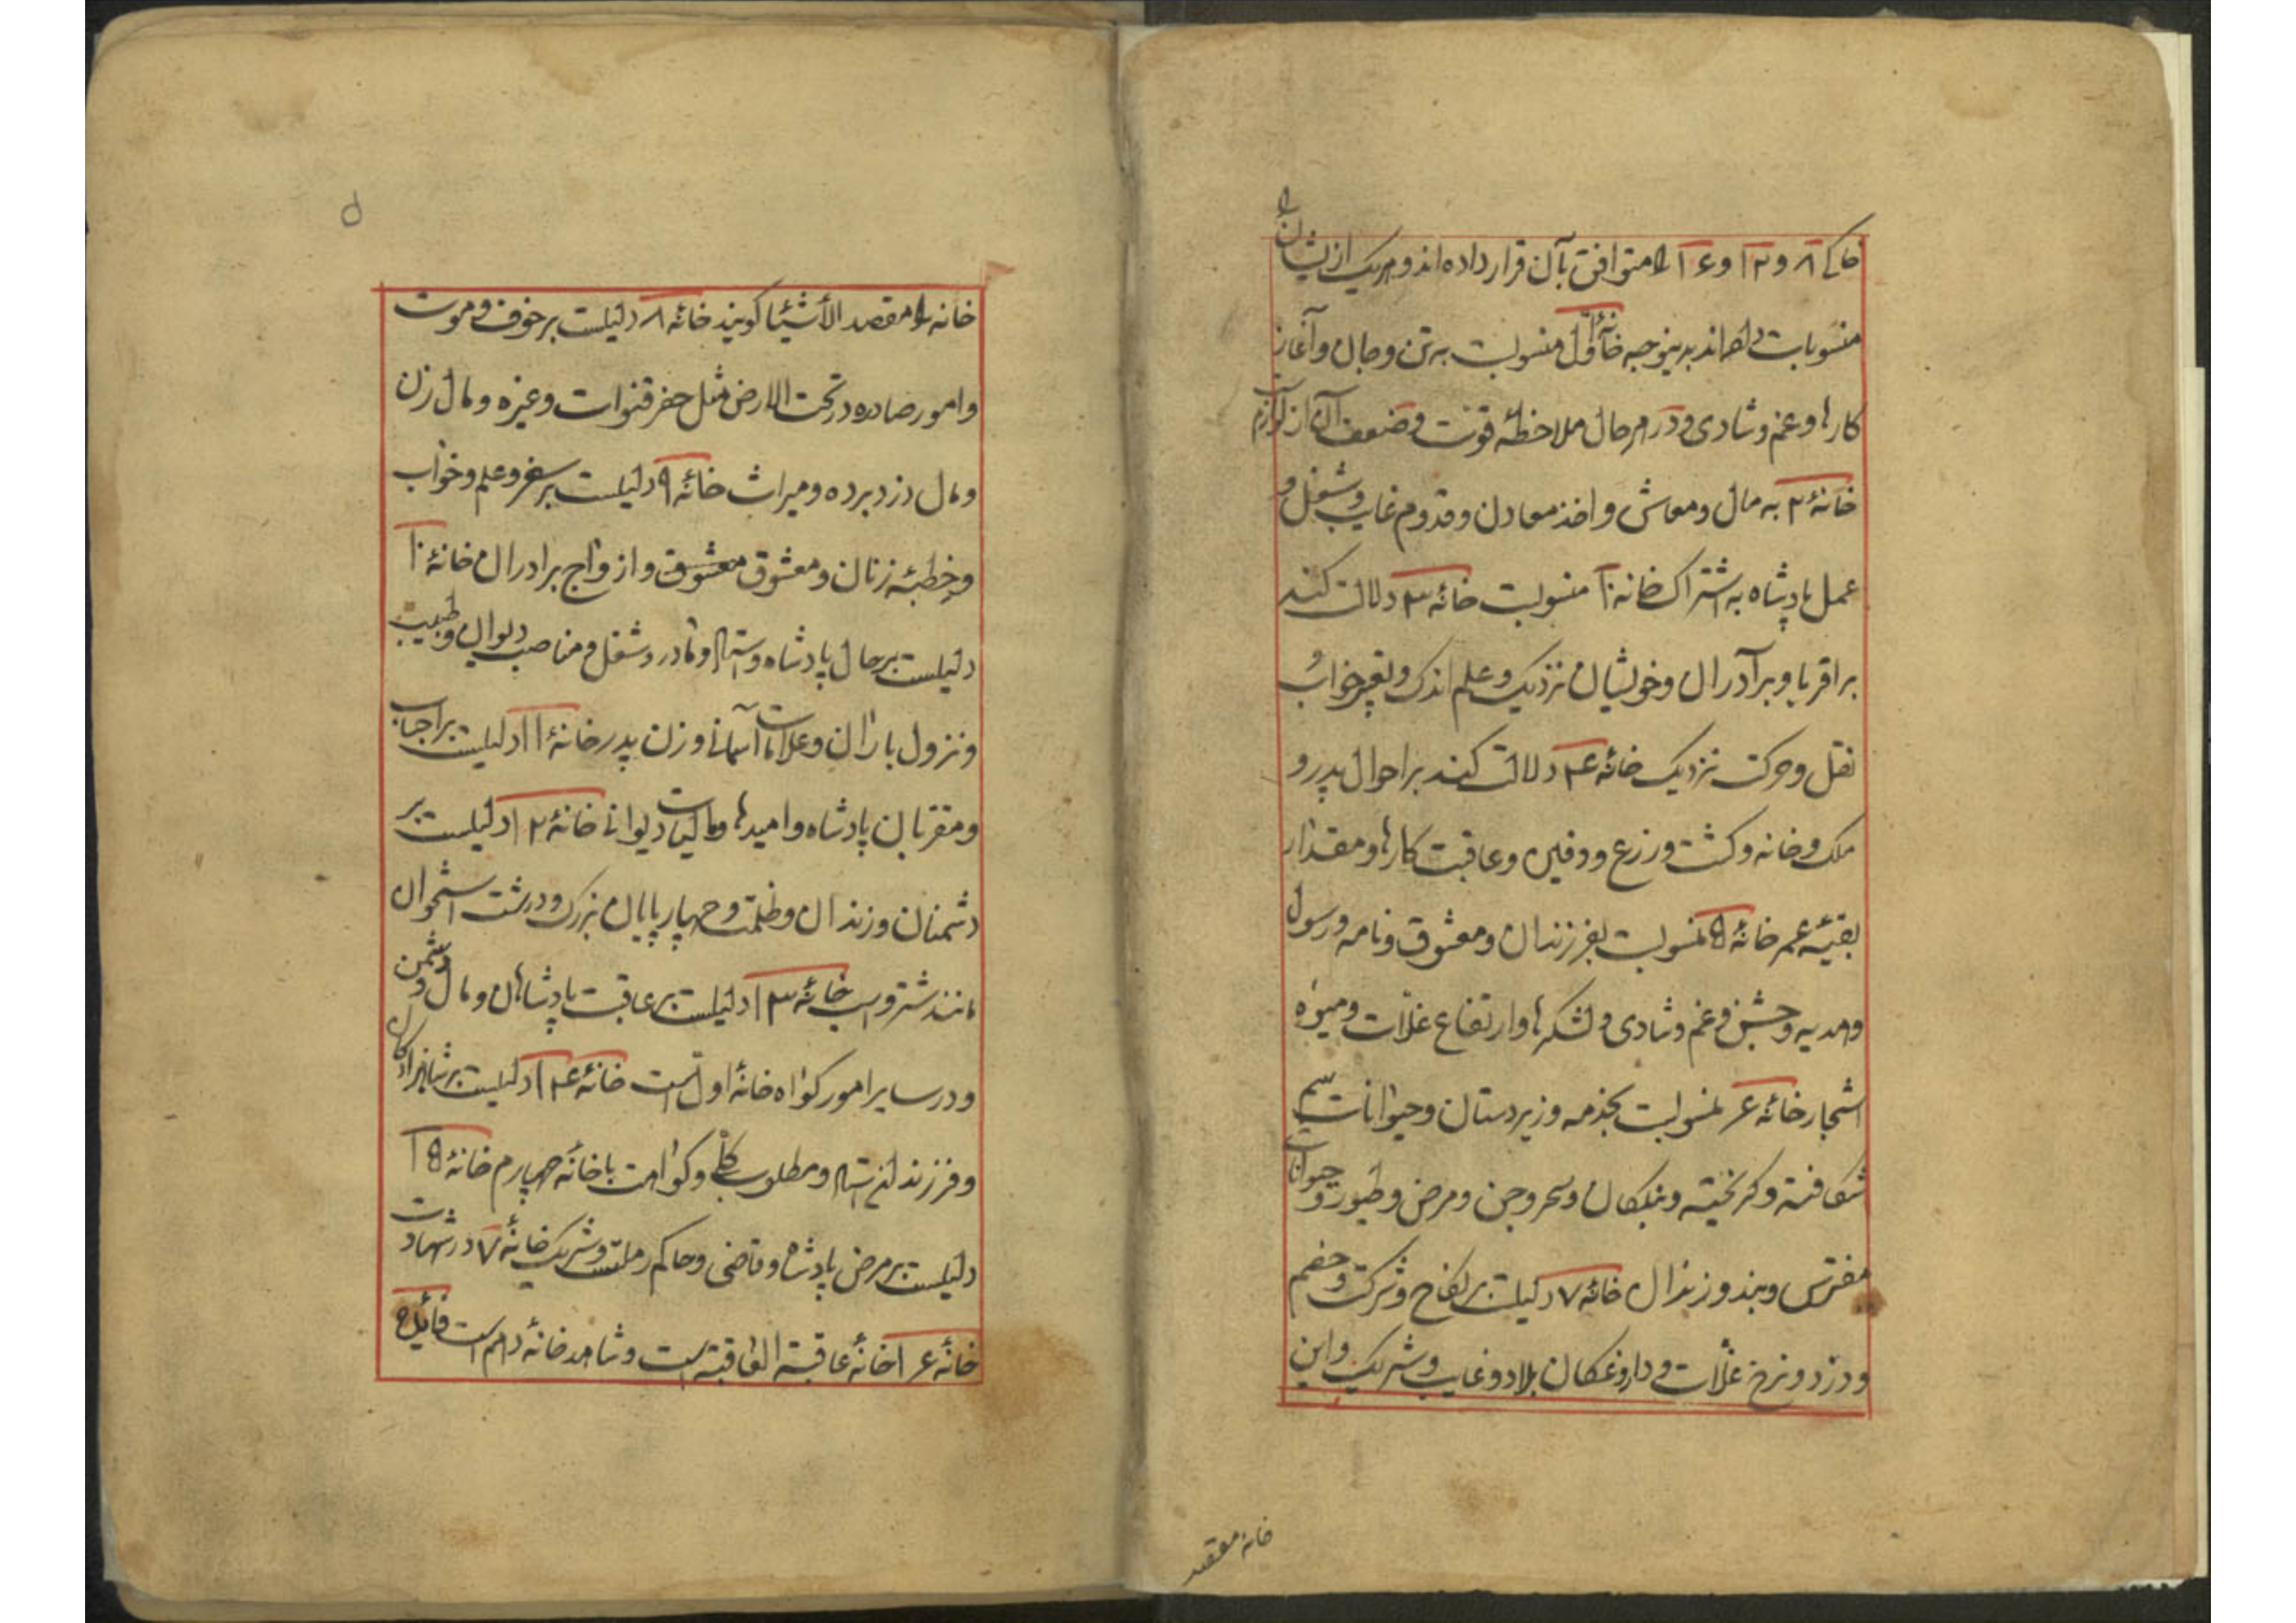 خاکی ۸ و ۱۲ و ۱۶ را متوافق بآن قرار داده اند و هر یک ازینخانها
منسوبات دارند بدینوجه خانهٔ اول منسوبست به تن و جان و آغاز
کارها و غم و شادی و در هر حال ملاحظهٔ قوت و ضعف آن از لوازم
خانهٔ ۲ به مال و معاش و اخذ معادن و قدوم غایب و شغل و
عمل پادشاه به اشتراک خانه ۱۰ منسوبست خانهٔ ۳ دلالت کند
بر اقربا و برادران و خویشان نزدیک و علم اندک و تعبیر خواب و
نقل و حرکت نزدیک خانهٔ ۴ دلالت کند بر احوال پدر و
ملک و خانه و کشت و زرع و دفین و عاقبت کارها و مقدار
بقیهٔ عمر خانهٔ ۵ منسوبست بفرزندان و معشوق و نامه و رسول
و هدیه و جشن و غم و شادی و لشکرها و ارتفاع غلات و میوهٔ
اشجار خانهٔ ۶ منسوبست بخدمه و زیردستان و حیوانات سم
شکافته و گریخته و بندگان و سحر و جن و مرض و طیور و حیوانات
مفترس و بند و زندان خانهٔ ۷ دلیلست بر نکاح و شرکت و خصم
و دزد و نرخ غلات و داروغگان بلاد و غایب و شریک و این
خانه مقصد
۵
خانه را مقصد الأشیا گویند خانهٔ ۸ دلیلست بر خوف و موت
و امور صادره در تحت الارض مثل حفر قنوات و غیره و مال زن
و مال دزد برده و میراث خانهٔ ۹ دلیلست بر سفر و علم و خواب
و خطبهٔ زنان و معشوق معشوق و ازواج برادران خانهٔ ۱۰
دلیلست بر حال پادشاه و استاد و مادر و شغل و مناصب دیوان و طبیب
و نزول باران و علامات آسمانی و زن پدر خانهٔ ۱۱ دلیلست بر احباب
و مقربان پادشاه و امیدها و مالیات دیوانی خانهٔ ۱۲ دلیلست بر
دشمنان و زندان و ظلمت و چهارپایان بزرک و درشت استخوان
مانند شتر و اسب خانهٔ ۱۳ دلیلست بر عاقبت پادشاهان و مال دشمن
و در سایر امور گواه خانهٔ اول است خانهٔ ۱۴ دلیلست بر
و فرزند و مطلوب کلی و گواهست با خانهٔ چهارم خانهٔ ۱۵
دلیلست بر مرض پادشاه و قاضی و حاکم رملست و شریک خانهٔ ۷ در شهادت
خانهٔ ۱۶ خانهٔ عاقبة العاقبة است و شاهد خانهٔ دهم است